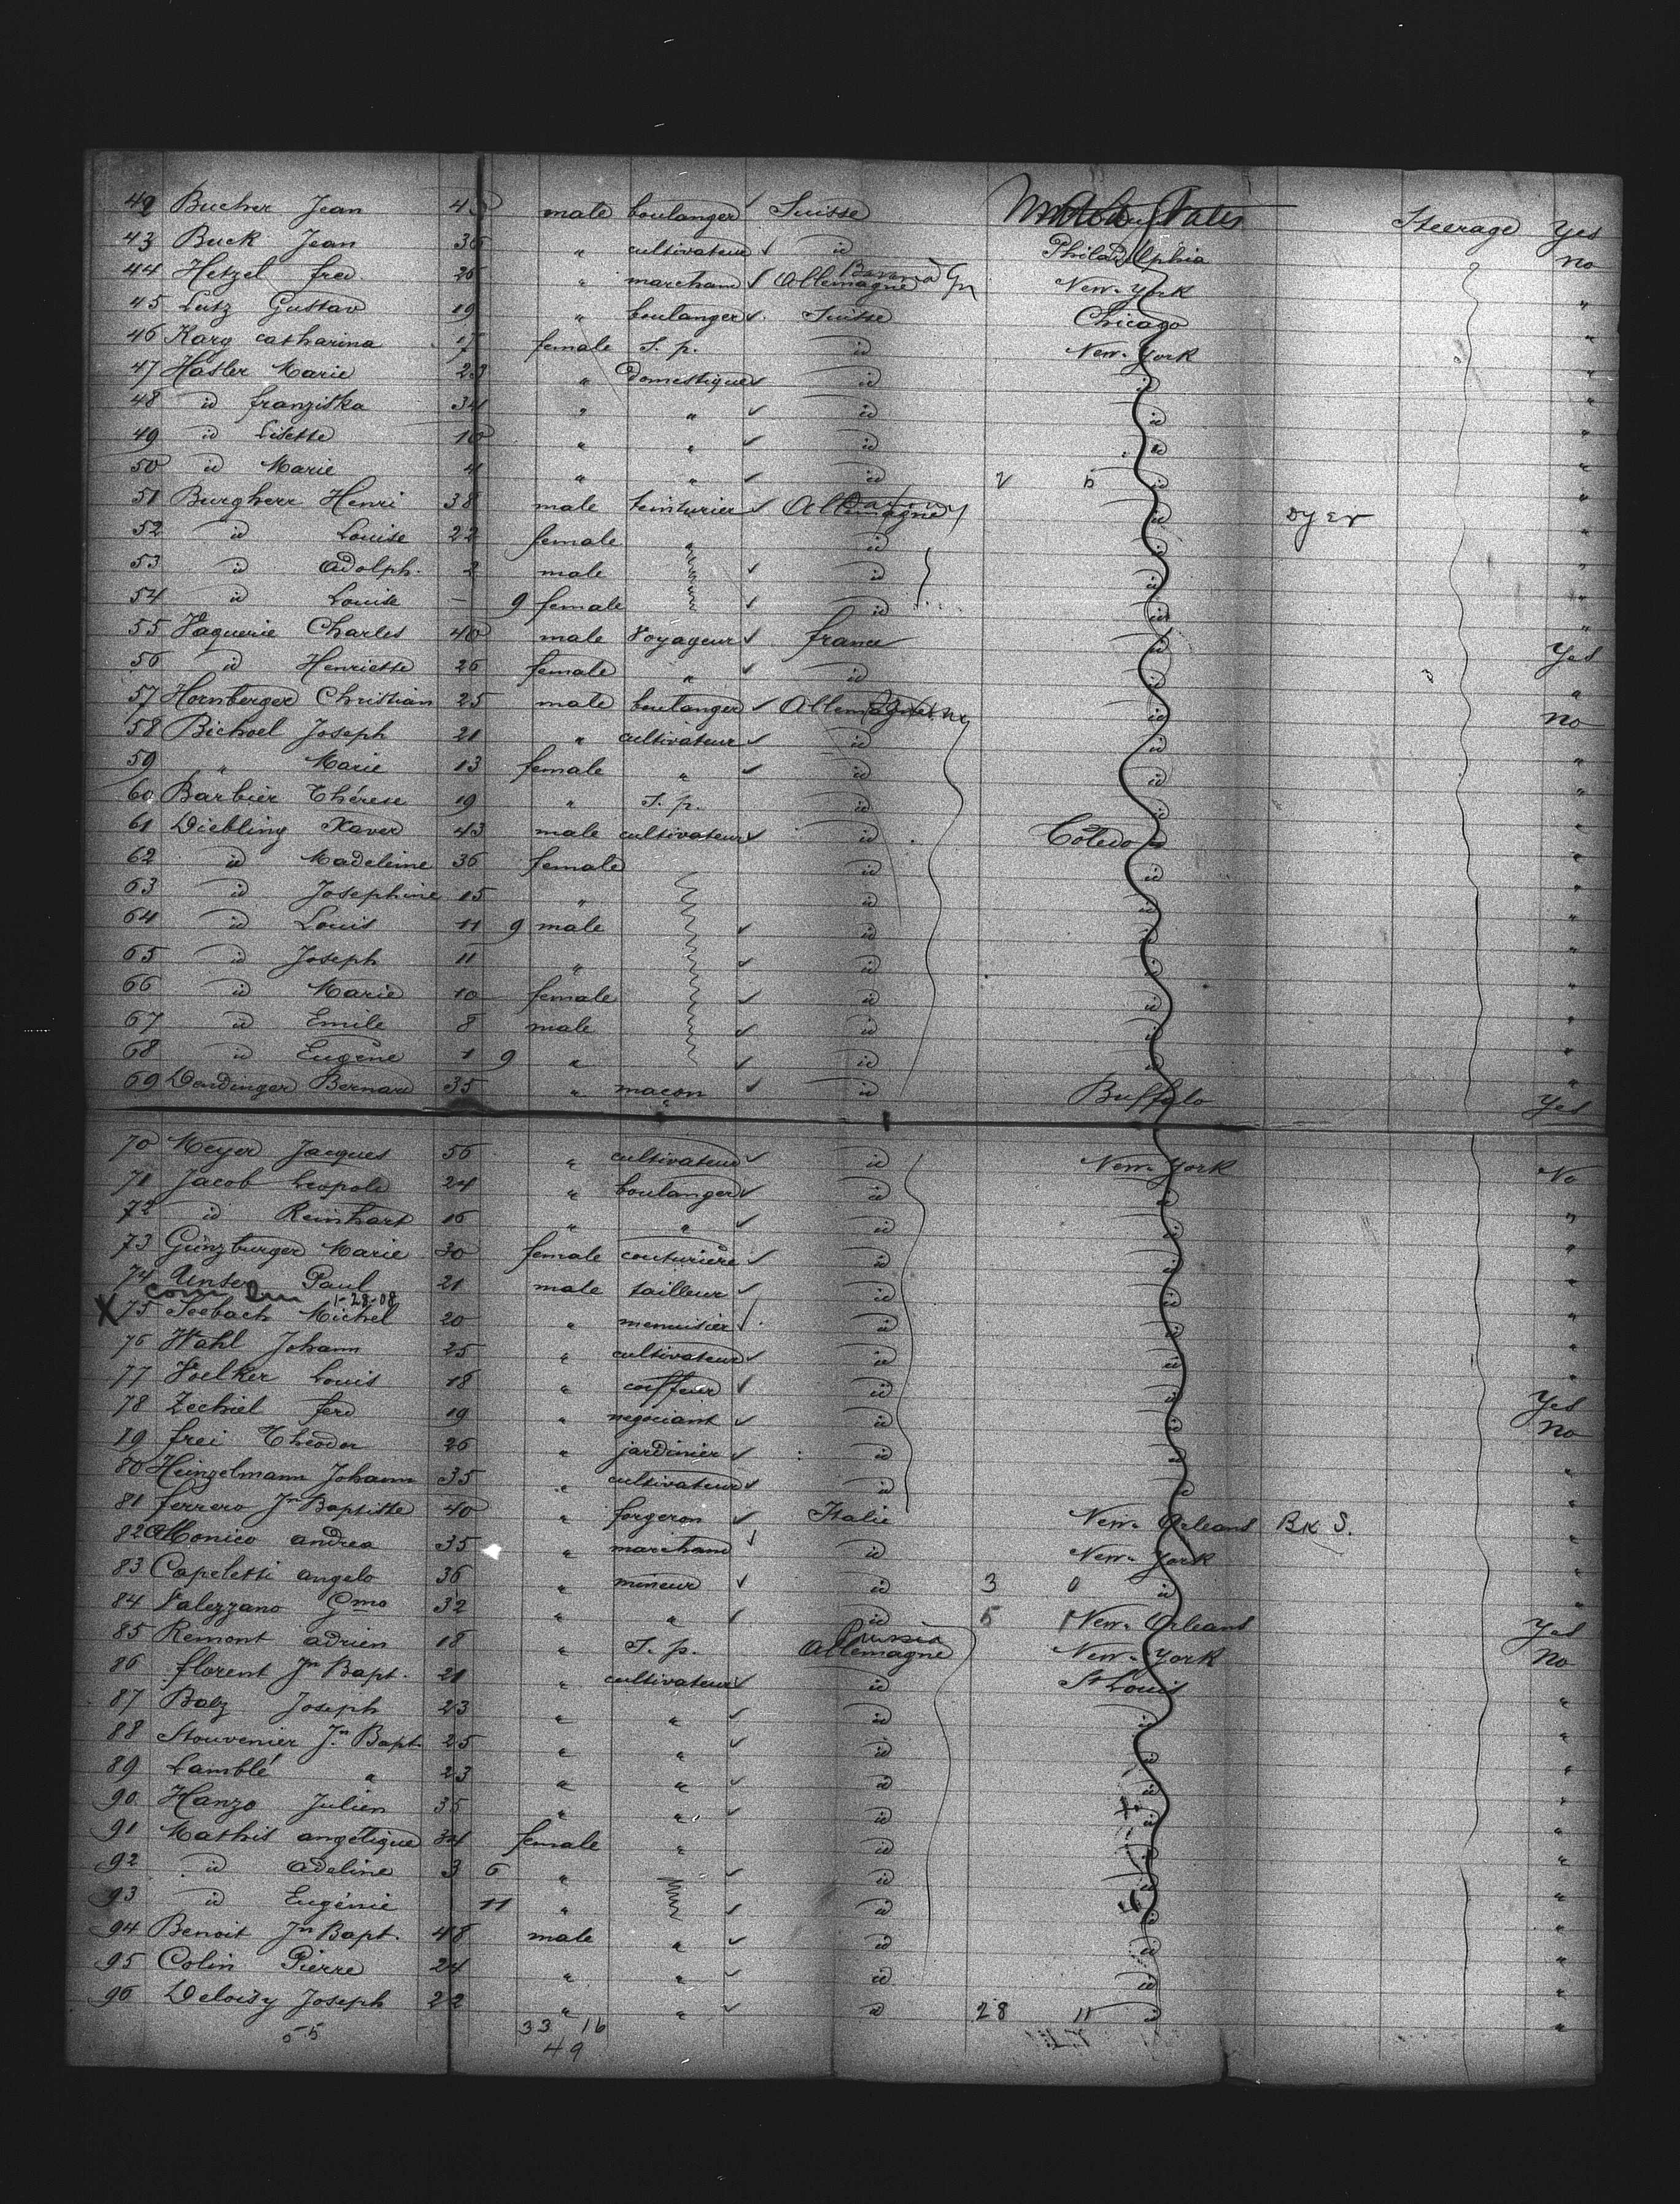 42 Bucher Jean 45 male boulanger Suisse United States Steerage Yes
43 Buck Jean 36 " cultivateur id Philadelphia no
44 Hetzel fred 26 " marchand Allemagne New-York "
45 Lutz Gustav 19 " boulanger Suisse Chicago "
46 Karg catharina 17 female S. p. id New-York "
47 Hasler Marie 23 " domestique id id "
48 id franziska 34 " " id id "
49 id Lisette 10 " " id id "
50 id Marie 4 " " id id "
51 Burgherr Henri 38 male teinturier Allemagne id Dyer "
52 id Louise 22 female " id id "
53 id Adolph. 2 male id id "
54 id Louise - 9 female id id "
55 Vaquerie Charles 40 male Voyageur france id Yes
56 id Henriette 26 female " id id "
57 Hornberger Christian 25 male boulanger Allemagne id no
58 Bichoel Joseph 21 " cultivateur id id "
59 " Marie 13 female " id id "
60 Barbier Thérese 19 " S. p. id id "
61 Diebling Xaver 43 male cultivateur id Toledo "
62 id Madeleine 36 female id id "
63 id Josephine 15 " id id "
64 id Louis 11 9 male id id "
65 id Joseph 11 " id id "
66 id Marie 10 female id id "
67 id Emile 8 male id id "
68 id Eugène 1 9 " id id "
69 Dendinger Bernard 35 " macon id Buffalo Yes
70 Meyer Jacques 56 " cultivateur id New-York No
71 Jacob Leopold 24 " boulanger id id "
72 id Reinhart 16 " " id id "
73 Günzburger Marie 30 female couturière id id "
74 Unser Paul 21 male tailleur id id
1-28-08
X 75 Seebach Michel 20 " menuisier id id "
76 Wahl Johann 25 " cultivateur id id "
77 Voelker Louis 18 " coiffeur id id Yes
78 Zechiel ferd 19 " negociant id id No
79 frei Theodor 26 " jardinier id id "
80 Heinzelmann Johann 35 " cultivateur id id "
81 ferrero Jn Baptiste 40 " forgeron Italie New-Orleans Bk S. "
82 Monico andrea 35 " marchand id New-York "
83 Capeletti angelo 36 " mineur id 3 0 id "
84 Valezzano Gmo 32 " " id 5 1 New-Orleans Yes
85 Remont adrien 18 " S. p. Allemagne Prussia New-York No
86 florent Jn Bapt. 21 " cultivateur id St Louis "
87 Balz Joseph 23 " " id id "
88 Stouvenier Jn Bapt. 25 " " id id "
89 Lamblé " 23 " " id id "
90 Hanzo Julien 35 " " id id "
91 Mathis angélique 34 female " id id "
92 id Adeline 3 6 " id id "
93 id Eugénie 11 " id id "
94 Benoit Jn Bapt. 48 male " id id "
95 Colin Pierre 24 " " id id "
96 Deloisy Joseph 22 " " id 28 11 id "
55 33 - 16
49